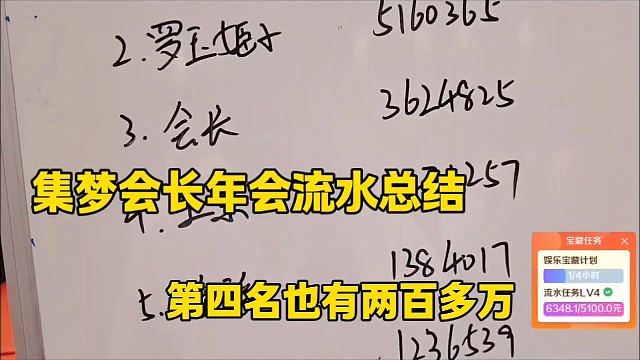 2. 罗玉姬 5160365
3. 会长 3624825
集梦会长年会流水总结
257
4.
1384017
5.
第四名也有两百多万
1236539
宝藏任务
娱乐宝藏计划
1/4小时
流水任务LV4
6348.1/5100.0元